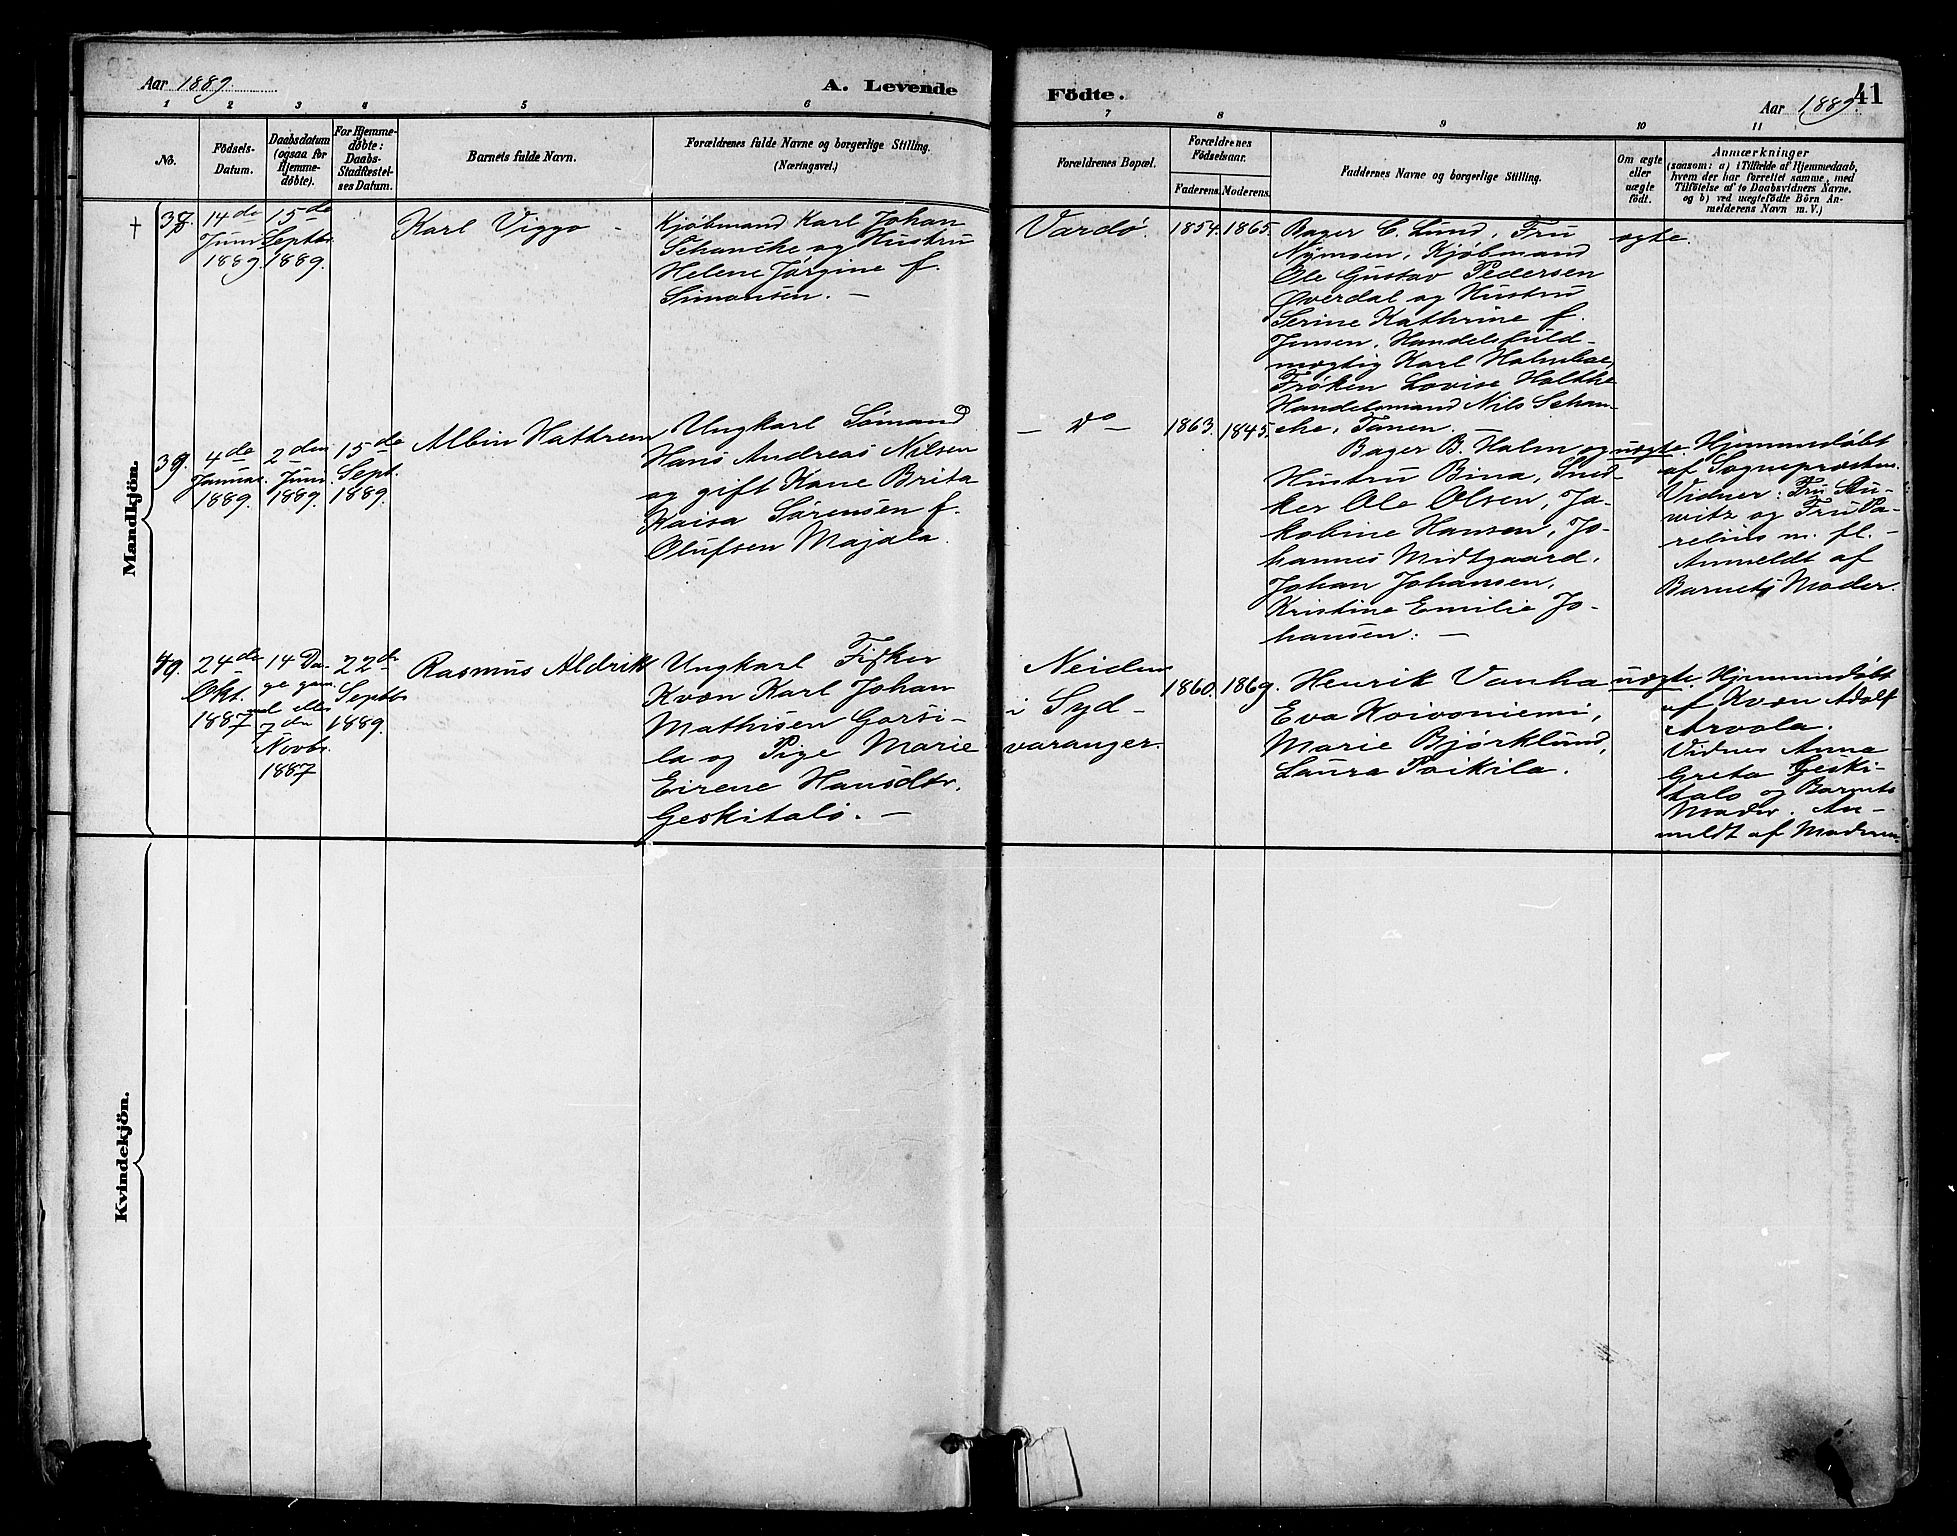 Aar 1889. A. Levende Födte. Aar 1889. 41
1 2 3 4 5 6 7 8 9 10 11
No.
Födsels-
Datum.
Daabsdatum
(ogsaa for
Hjemme-
döbte).
For Hjemme-
döbte:
Daabs-
Stadfæstel-
ses Datum.
Barnets fulde Navn.
Forældrenes fulde Navne og borgerlige Stilling.
(Næringsvei.)
Forældrenes Bopæl.
Forældrenes
Födselsaar.
Faderens. Moderens.
Faddernes Navne og borgerlige Stilling.
Om ægte
eller
uægte
födt.
Anmærkninger
(saasom: a) i Tilfælde af Hjemmedaab,
hvem der har forrettet samme, med
Tilföielse af to Daabsvidners Navne.
og b) ved uægtefödte Börn An-
melderens Navn m. V.)
Mandkjön.
†
38.
14de
Juni
1889.
15de
Septbr.
1889.
Karl Viggo –
Kjøbmand Karl Johan
Schancke og Hustru
Helene Jørgine f.
Simonsen. –
Vardö.
1854. 1865.
Bager C. Lund, Fru
Nymoen, Kjøbmand
Ole Gustav Pedersen
Overdal og Hustru
Serine Kathrine f.
Jensen, Handelsfuld-
mægtig Karl Holmboe,
Frøken Lovise Holthe
Handelsmand Nils Schan-
che, Tanen. –
ægte.
39.
4de
Januar.
1889.
2den
Juni
1889.
15de
Sept.
1889.
Albin Hathrem
Ungkarl Sømand
Hans Andreas Nilsen
og gift Kone Brita
Kaisa Sørensen f.
Olufsen Majala.
– Do –
1863. 1845.
Bager B. Holm og
Hustru Bina, Sned-
ker Ole Olsen, Ja-
kobine Hansen, Jo-
hannes Midtgaard,
Johan Johansen,
Kristine Emilie Jo-
hansen: –
uægte.
Hjemmedøbt
af Sognepræsten.
Vidner: Fru
og Fru
m. fl. –
Anmeldt af
Barnets Moder.
40.
24de
Okt.
1887
14 Da-
ge gam-
mel eller
7den
Novbr.
1887
22de
Septbr
1889.
Rasmus Aldrik
Ungkarl Fisker
Kvæn Karl Johan
Mathisen Gorsi-
la og Pige Marie
Eirene Hansdtr.
Geskitalo. –
Neiden
i Syd-
varanger.
1860. 1869.
Henrik Vanha
Eva Koivoniemi,
Marie Bjørklund,
Laura Poikila.
uægte.
Hjemmedøbt
af Kvæn Adolf
Arvola.
Vidner Anna
Greta Geski-
talo og Barnets
Moder. An-
meldt af Moderen.
Kvindekjön.